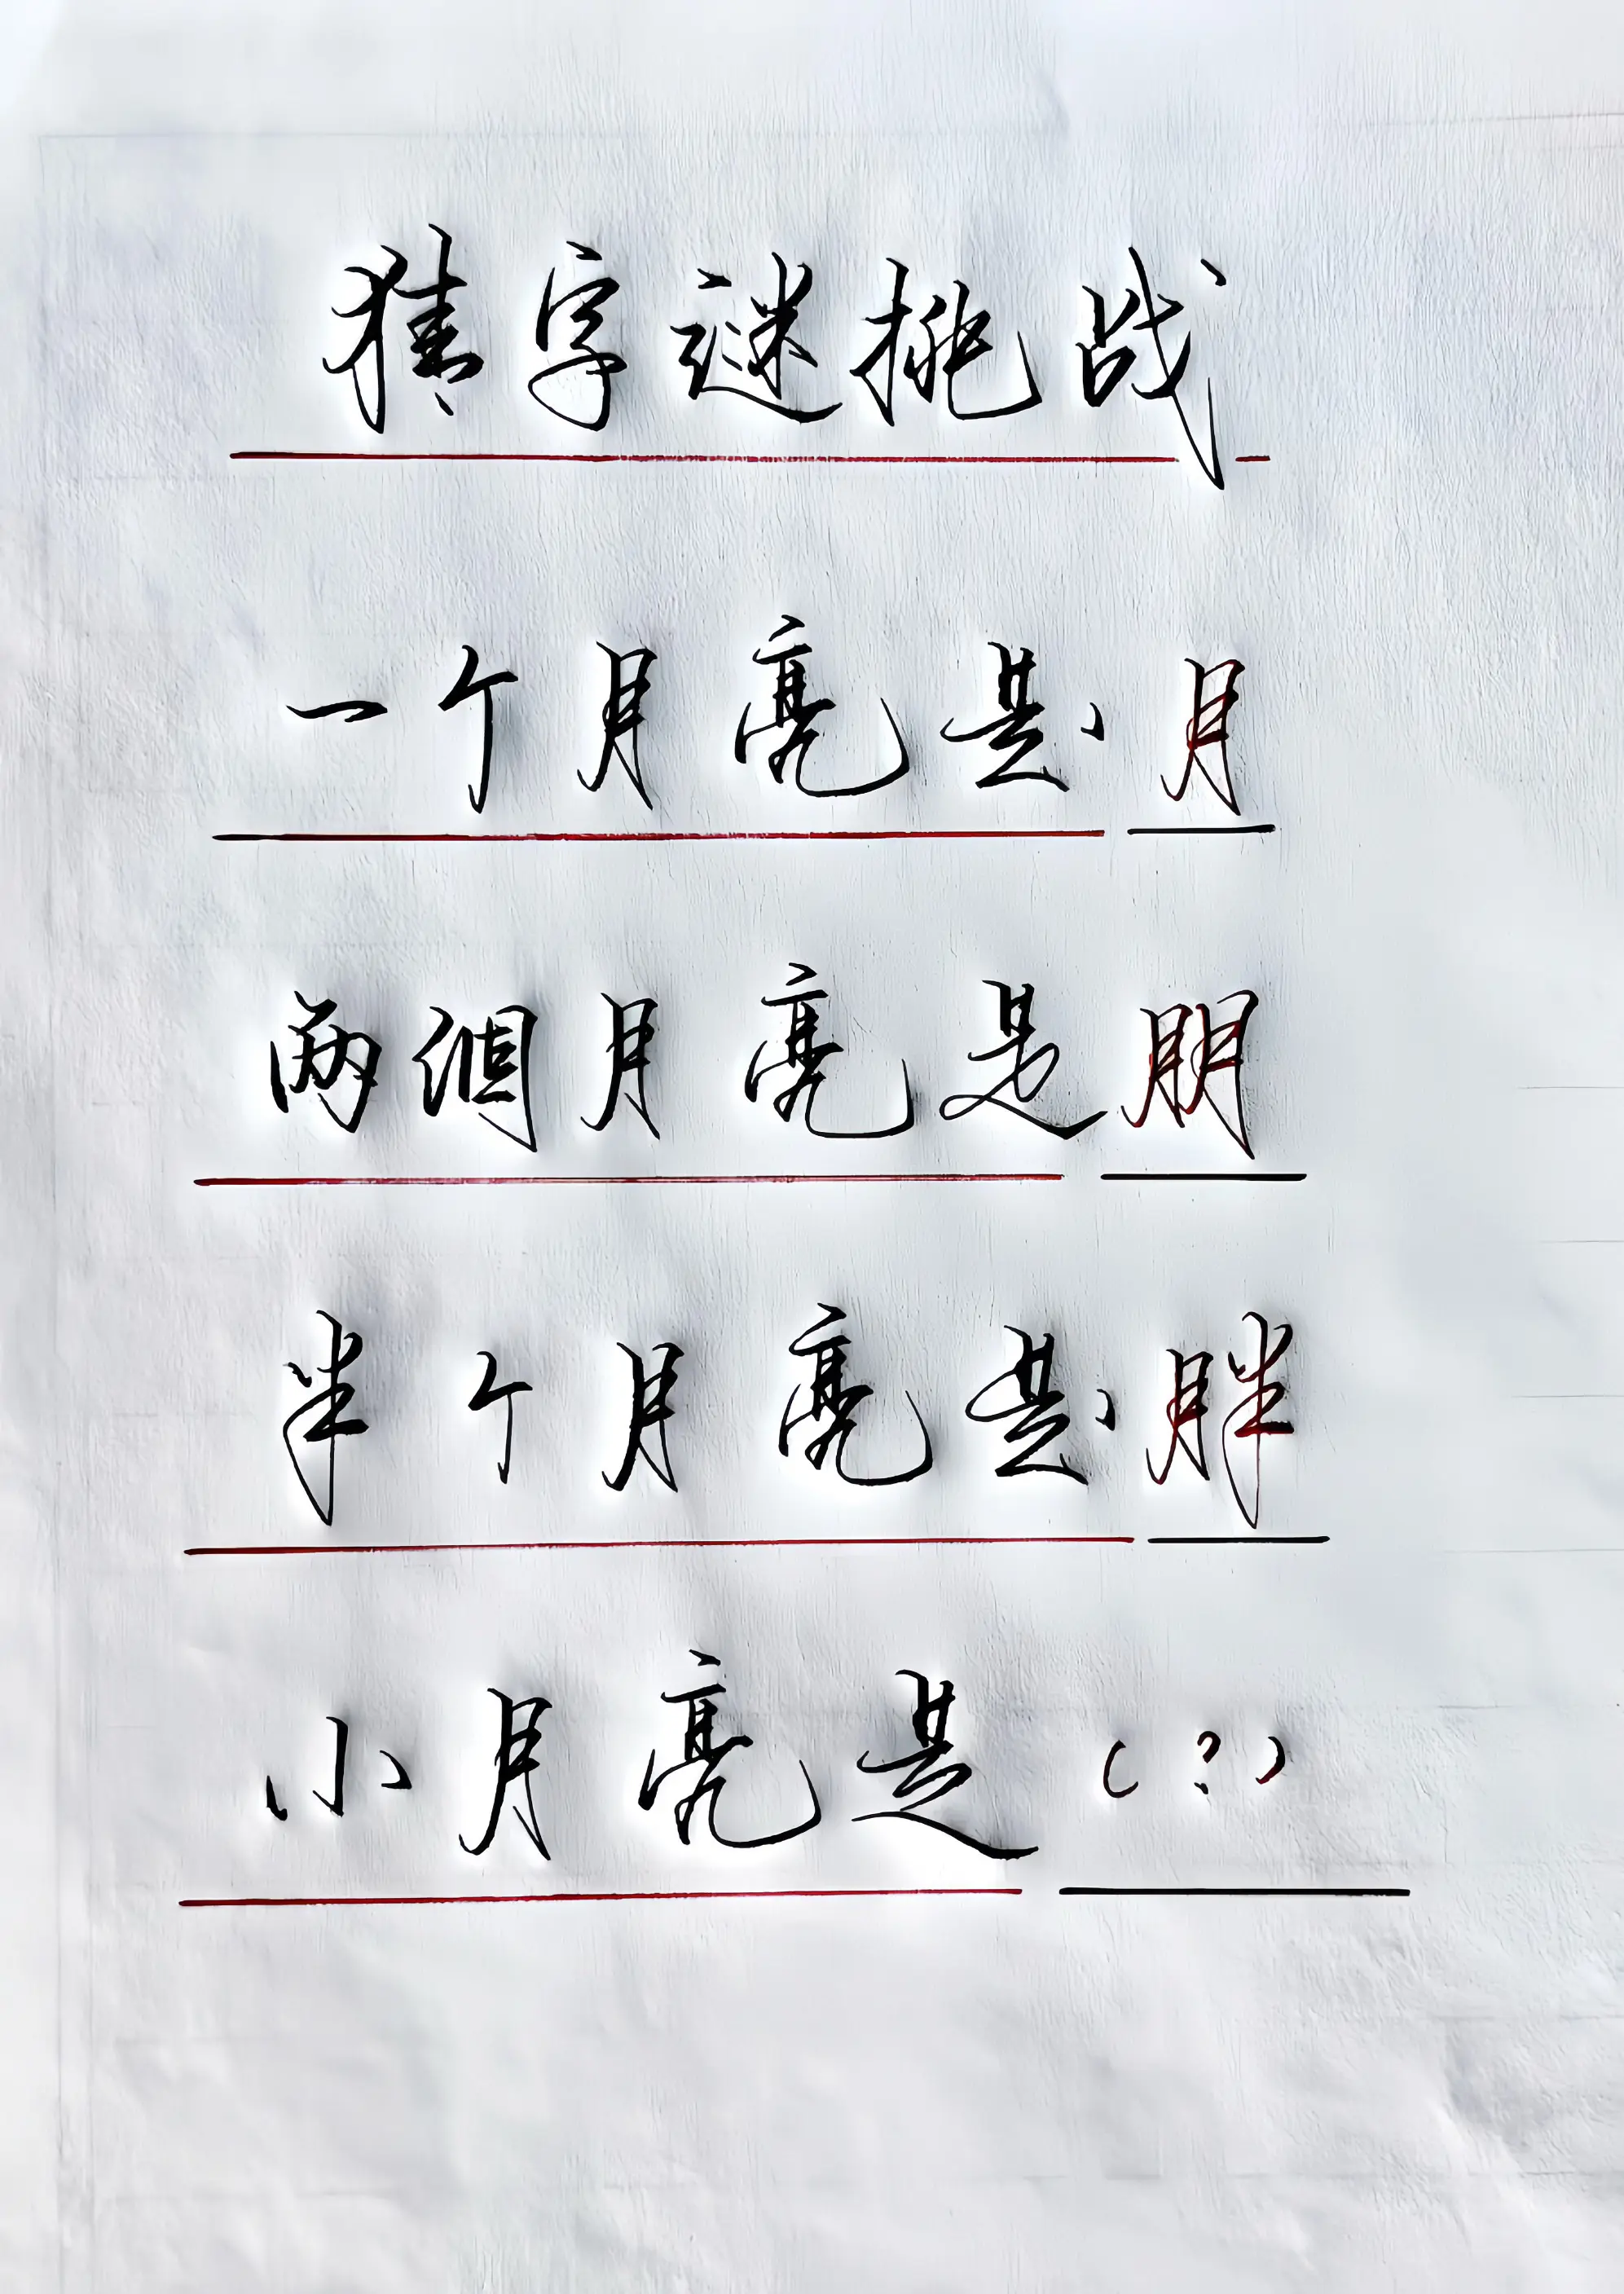 猜字谜挑战
一个月亮是月
两個月亮是朋
半个月亮是胖
小月亮是(?)